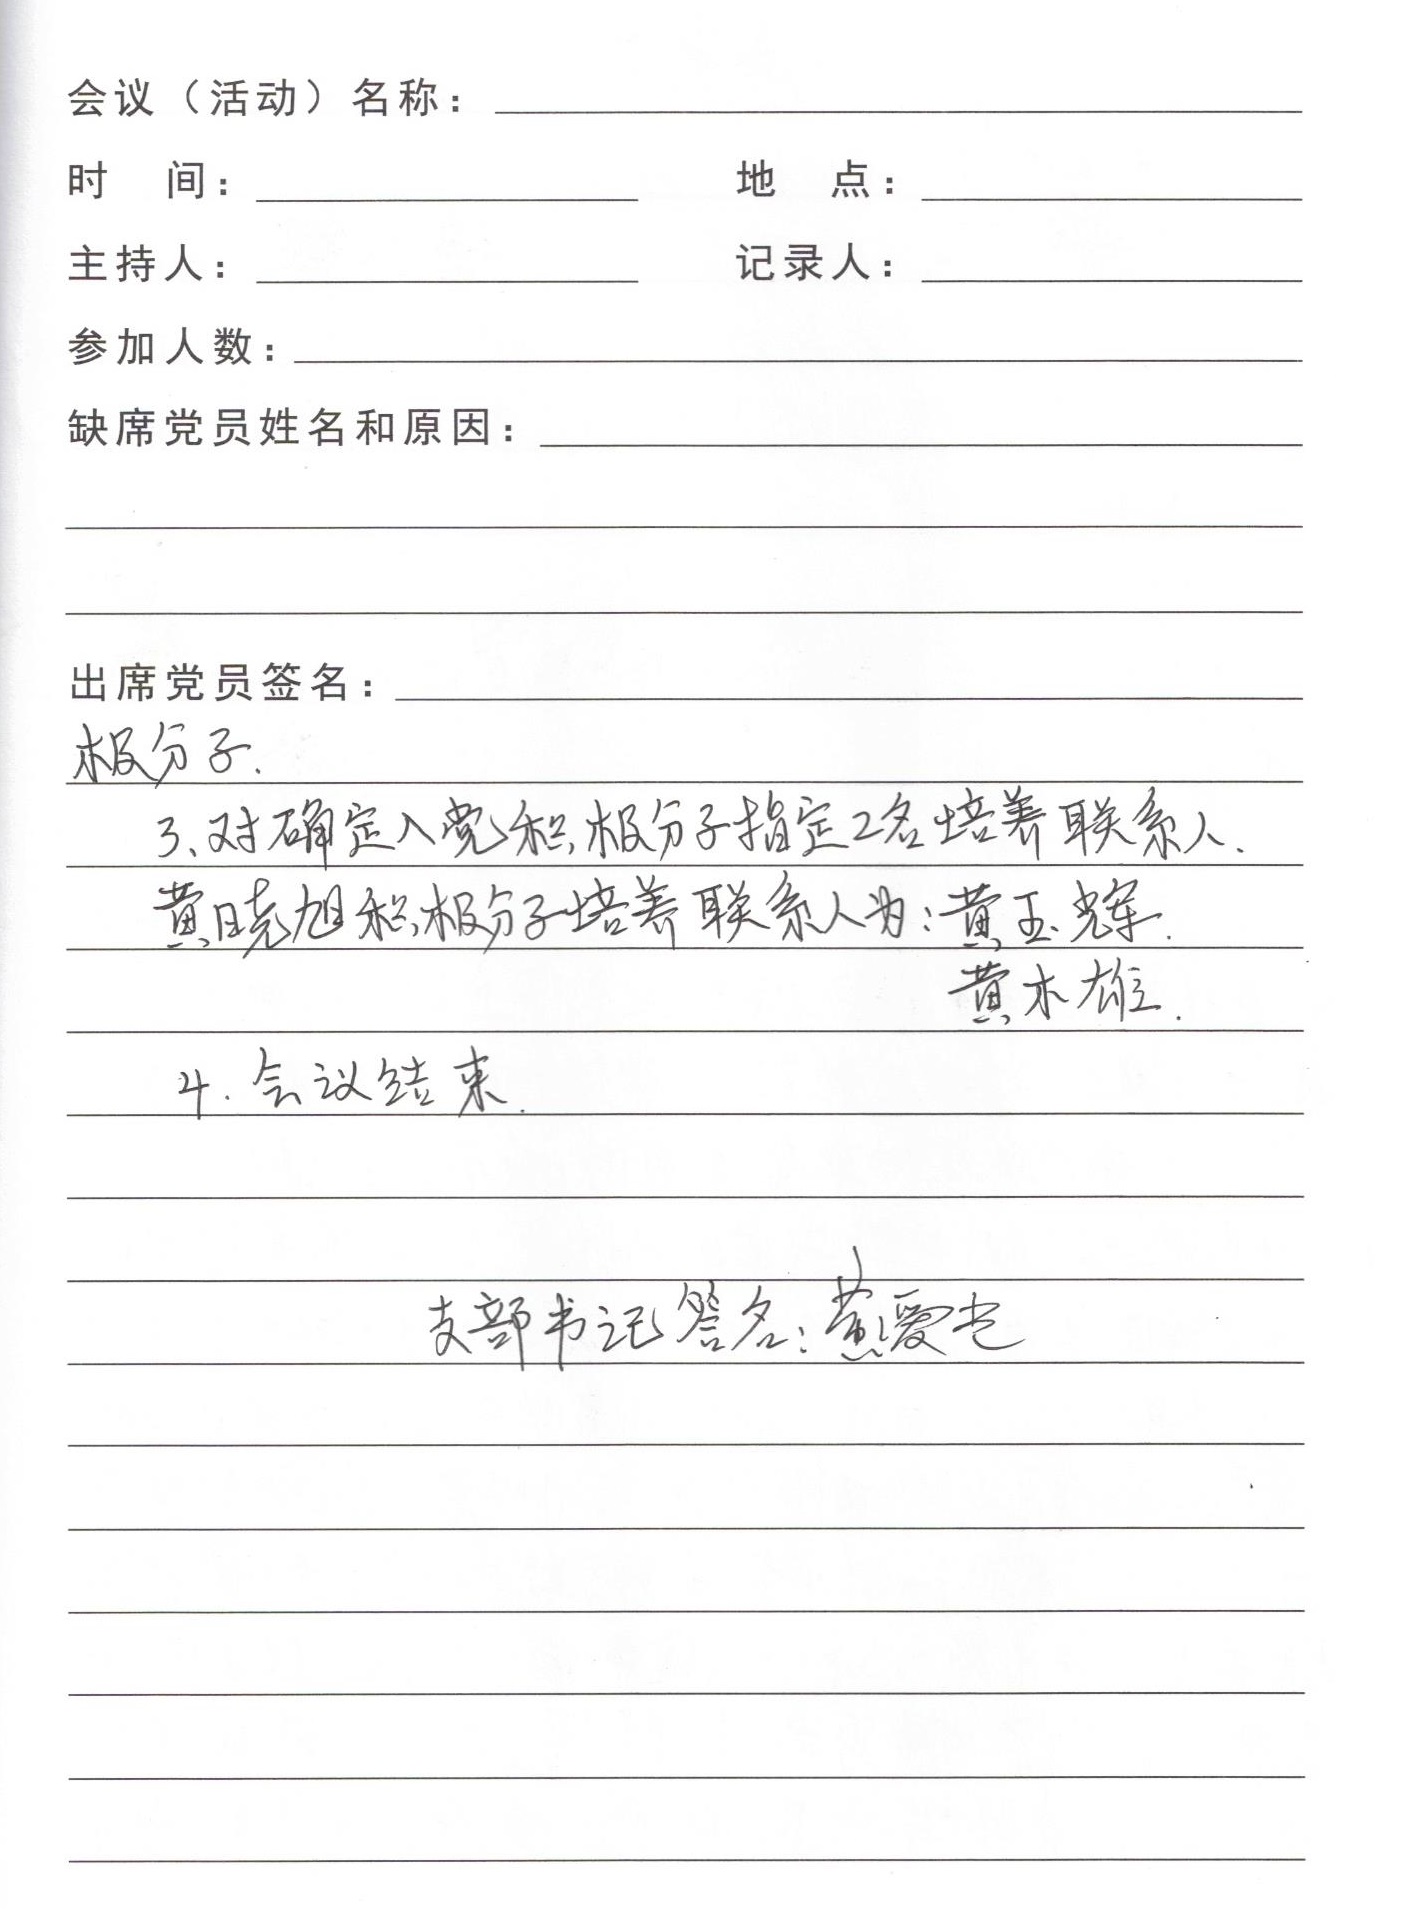 会议（活动）名称：
时 间： 地 点：
主持人： 记录人：
参加人数：
缺席党员姓名和原因：
出席党员签名：
极分子.
3、对确定入党积极分子指定2名培养联系人.
黄晓旭积极分子培养联系人为：黄玉辉.
黄木雄.
4. 会议结束.
支部书记签名：黄爱